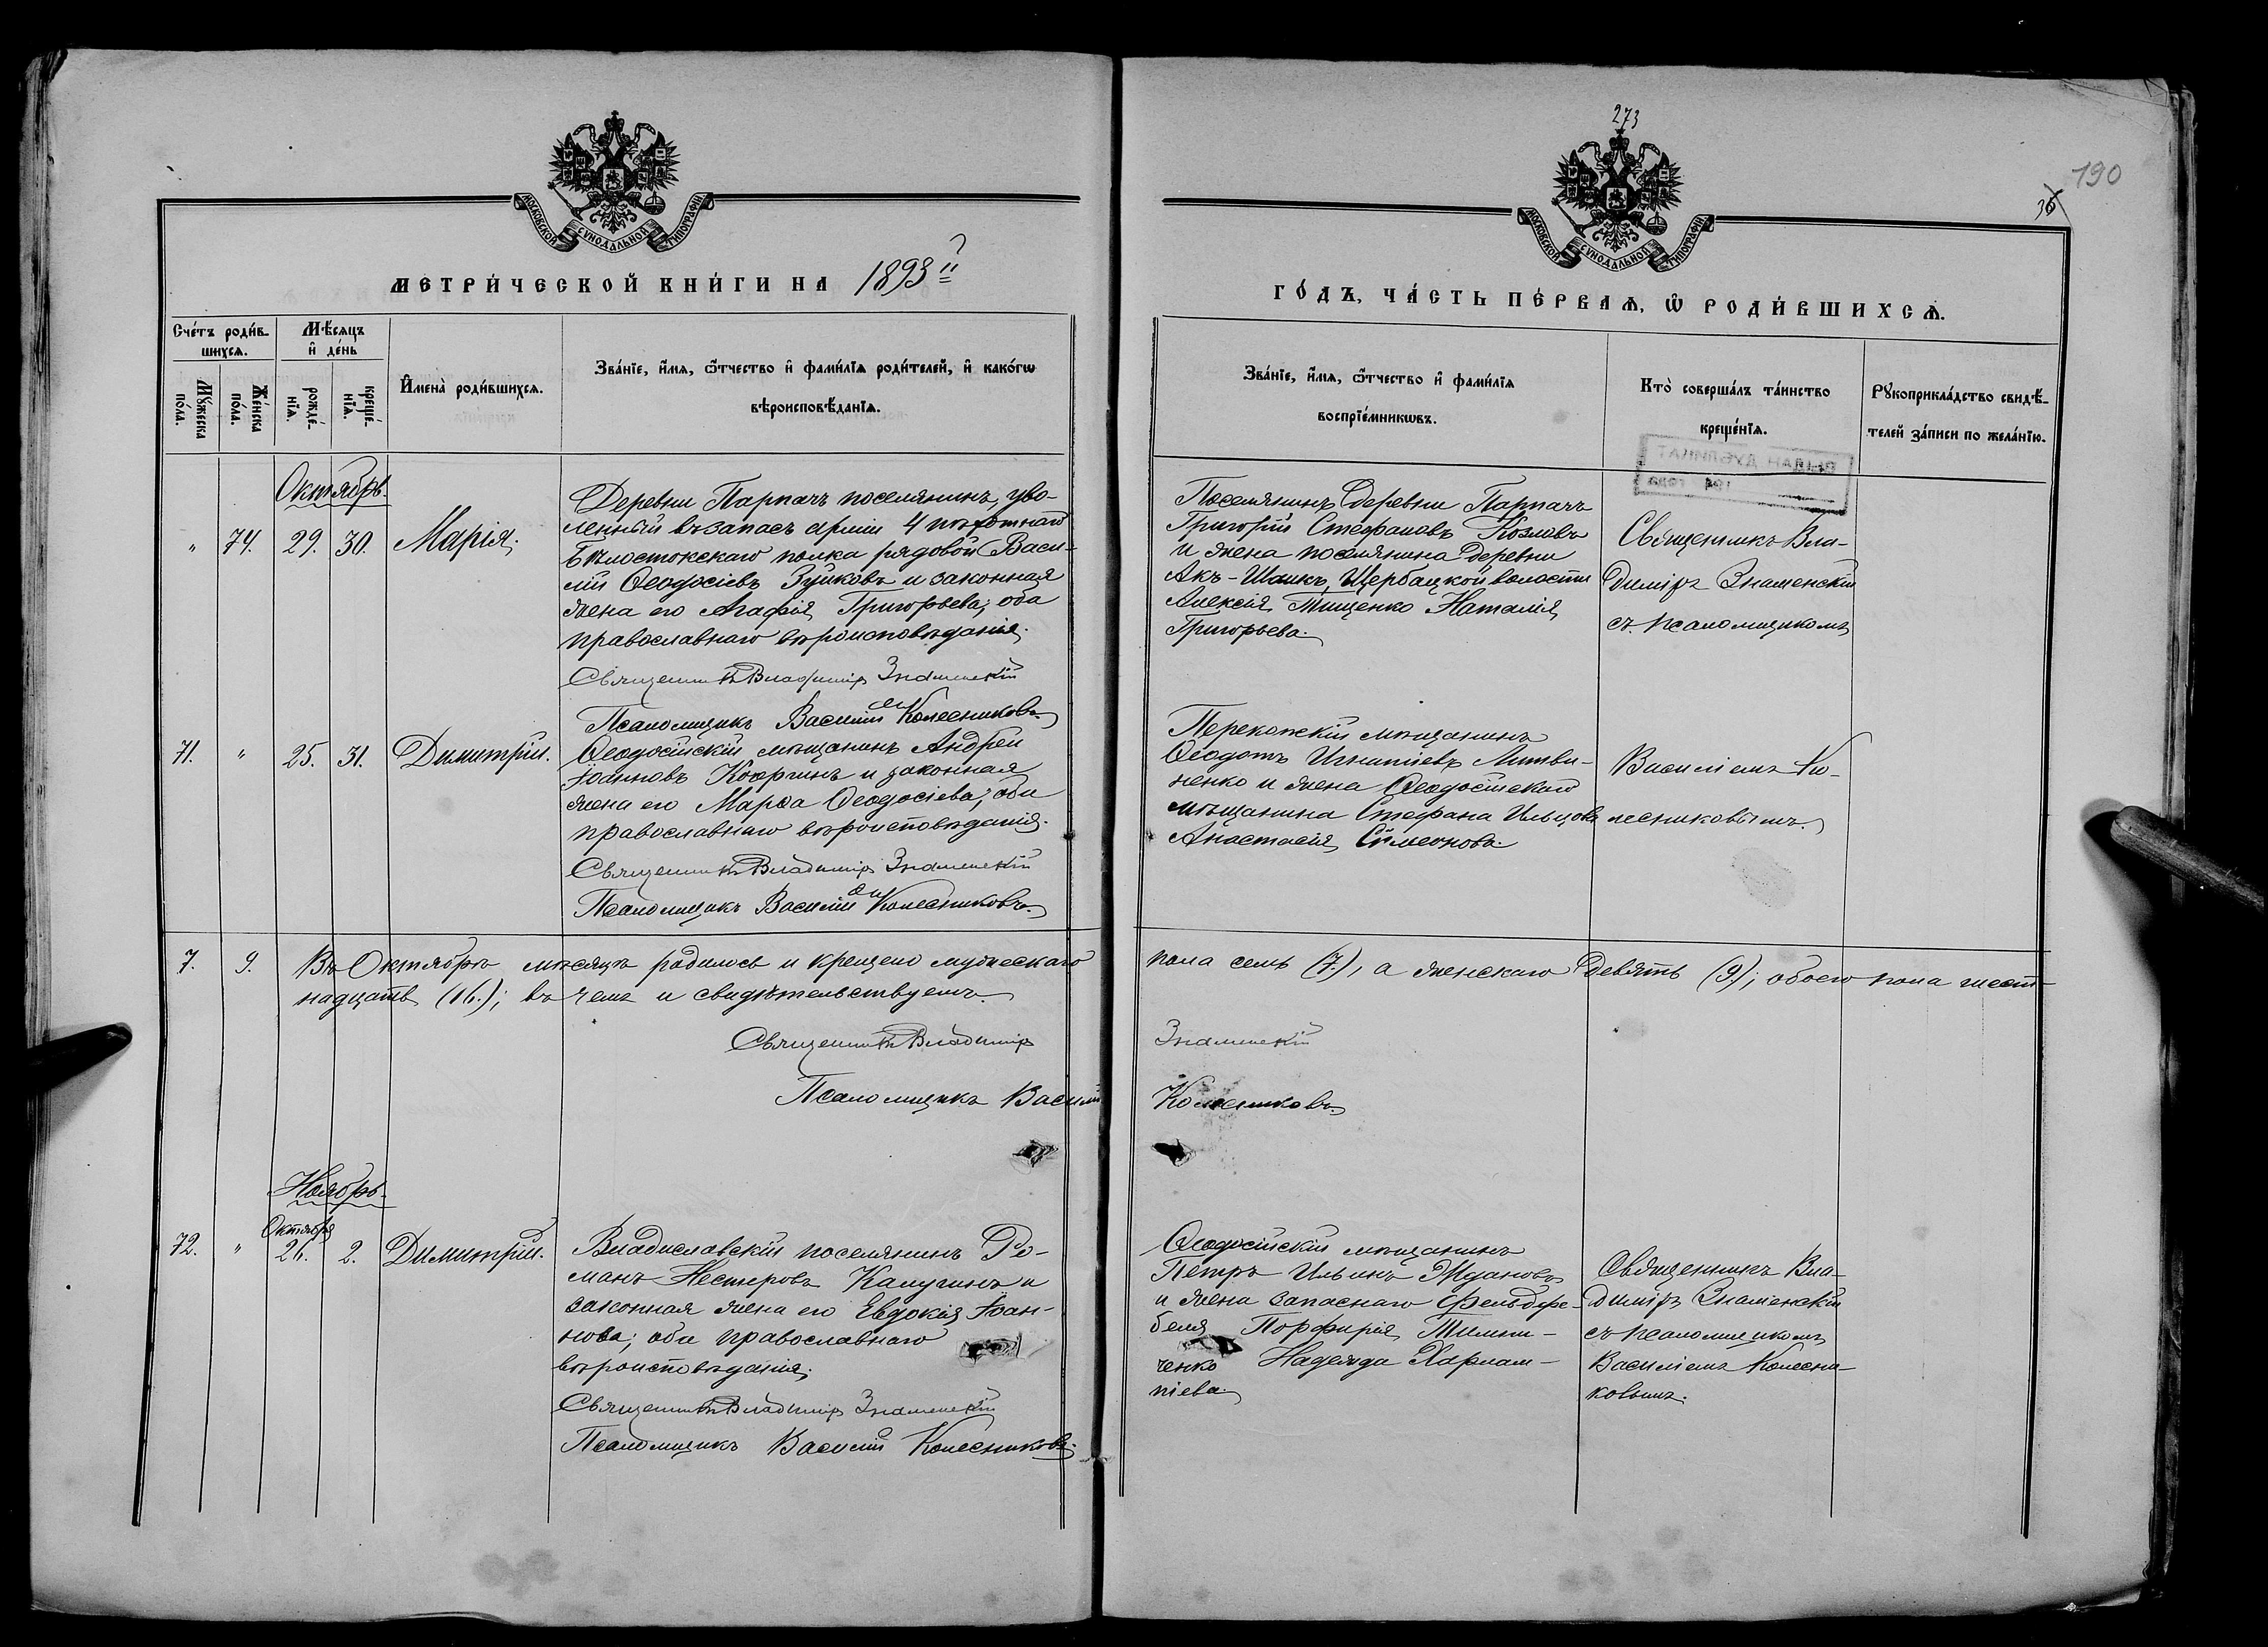 273
190
36
МОСКОВСКОЙ СѴНОДАЛЬНОЙ ТИПОГРАФІИ
МОСКОВСКОЙ СѴНОДАЛЬНОЙ ТИПОГРАФІИ
МЕТРИ́ЧЕСКОЙ КНИ́ГИ НА 1893й
ГО́ДЪ, ЧА́СТЬ ПЕ́РВАѦ, Ѡ҆ РОДИ́ВШИХСѦ.
Сче́тъ роди́в-
шихсѧ.
Мꙋ́жеска
по́ла.
Же́нска
по́ла.
Мѣ́сяцъ
и҆ де́нь
рожде́-
нїѧ.
креще́-
нїѧ.
И҆мена̀ роди́вшихсѧ.
Зва́нїе, и҆́мѧ, ѻ҆́тчество и҆ фами́лїѧ роди́телей, и҆ како́гѡ
вѣроисповѣ́данїѧ.
Зва́нїе, и҆́мѧ, ѻ҆́тчество и҆ фами́лїѧ
воспрїе́мникѡвъ.
Кто̀ соверша́лъ та́инство
креще́нїѧ.
Рꙋкоприкла́дство свидѣ́-
телей за́писи по жела́нїю.
Октябрь.
" 74. 29. 30. Марія.
Деревни Парпачъ поселянинъ, уво-
ленный въ запасъ арміи 4 пѣхотнаго
Бѣлостокскаго полка рядовой Васи-
лій Ѳеодосіевъ Зуйковъ и законная
жена его Агафія Григорьева; оба
православнаго вѣроисповѣданія.
Священникъ Владиміръ Знаменскій
Псаломщикъ Василій Колесниковъ
Поселянинъ деревни Парпачъ
Григорій Стефановъ Козловъ
и жена поселянина деревни
Акъ-Шаикъ, Щербацкой волости
Алексія Тищенко Наталія
Григорьева.
Священникъ Вла-
диміръ Знаменскій
съ псаломщикомъ
71. " 25. 31. Димитрій.
Ѳеодосійскій мѣщанинъ Андрей
Іоанновъ и законная
жена его Марѳа Ѳеодосіева; оба
православнаго вѣроисповѣданія.
Священникъ Владиміръ Знаменскій
Псаломщикъ Василій Колесниковъ
Перекопскій мѣщанинъ
Ѳеодотъ Игнатіевъ Литви-
ненко и жена Ѳеодосійскаго
мѣщанина Стефана Ильцова
Анастасія Симеонова.
Василіемъ Ко-
лесниковымъ.
7. 9. Въ Октябрѣ мѣсяцѣ родилось и крещено мужескаго пола семь (7.), а женскаго девять (9.); обоего пола шест-
надцать (16.); въ чемъ и свидѣтельствуемъ.
Священникъ Владиміръ Знаменскій
Псаломщикъ Василій Колесниковъ
Ноябрь.
Октября
72. " 26. 2. Димитрій.
Владиславскій поселянинъ Ро-
манъ Нестеровъ Калугинъ и
законная жена его Евдокія Іоан-
нова; оба православнаго
вѣроисповѣданія.
Священникъ Владиміръ Знаменскій
Псаломщикъ Василій Колесниковъ.
Ѳеодосійскій мѣщанинъ
Петръ Ильинъ Ждановъ
и жена запаснаго фельдфе-
беля Порфирія Тимни-
ченко Надежда Харлам-
піева.
Священникъ Вла-
диміръ Знаменскій
съ псаломщикомъ
Василіемъ Колесни-
ковымъ.